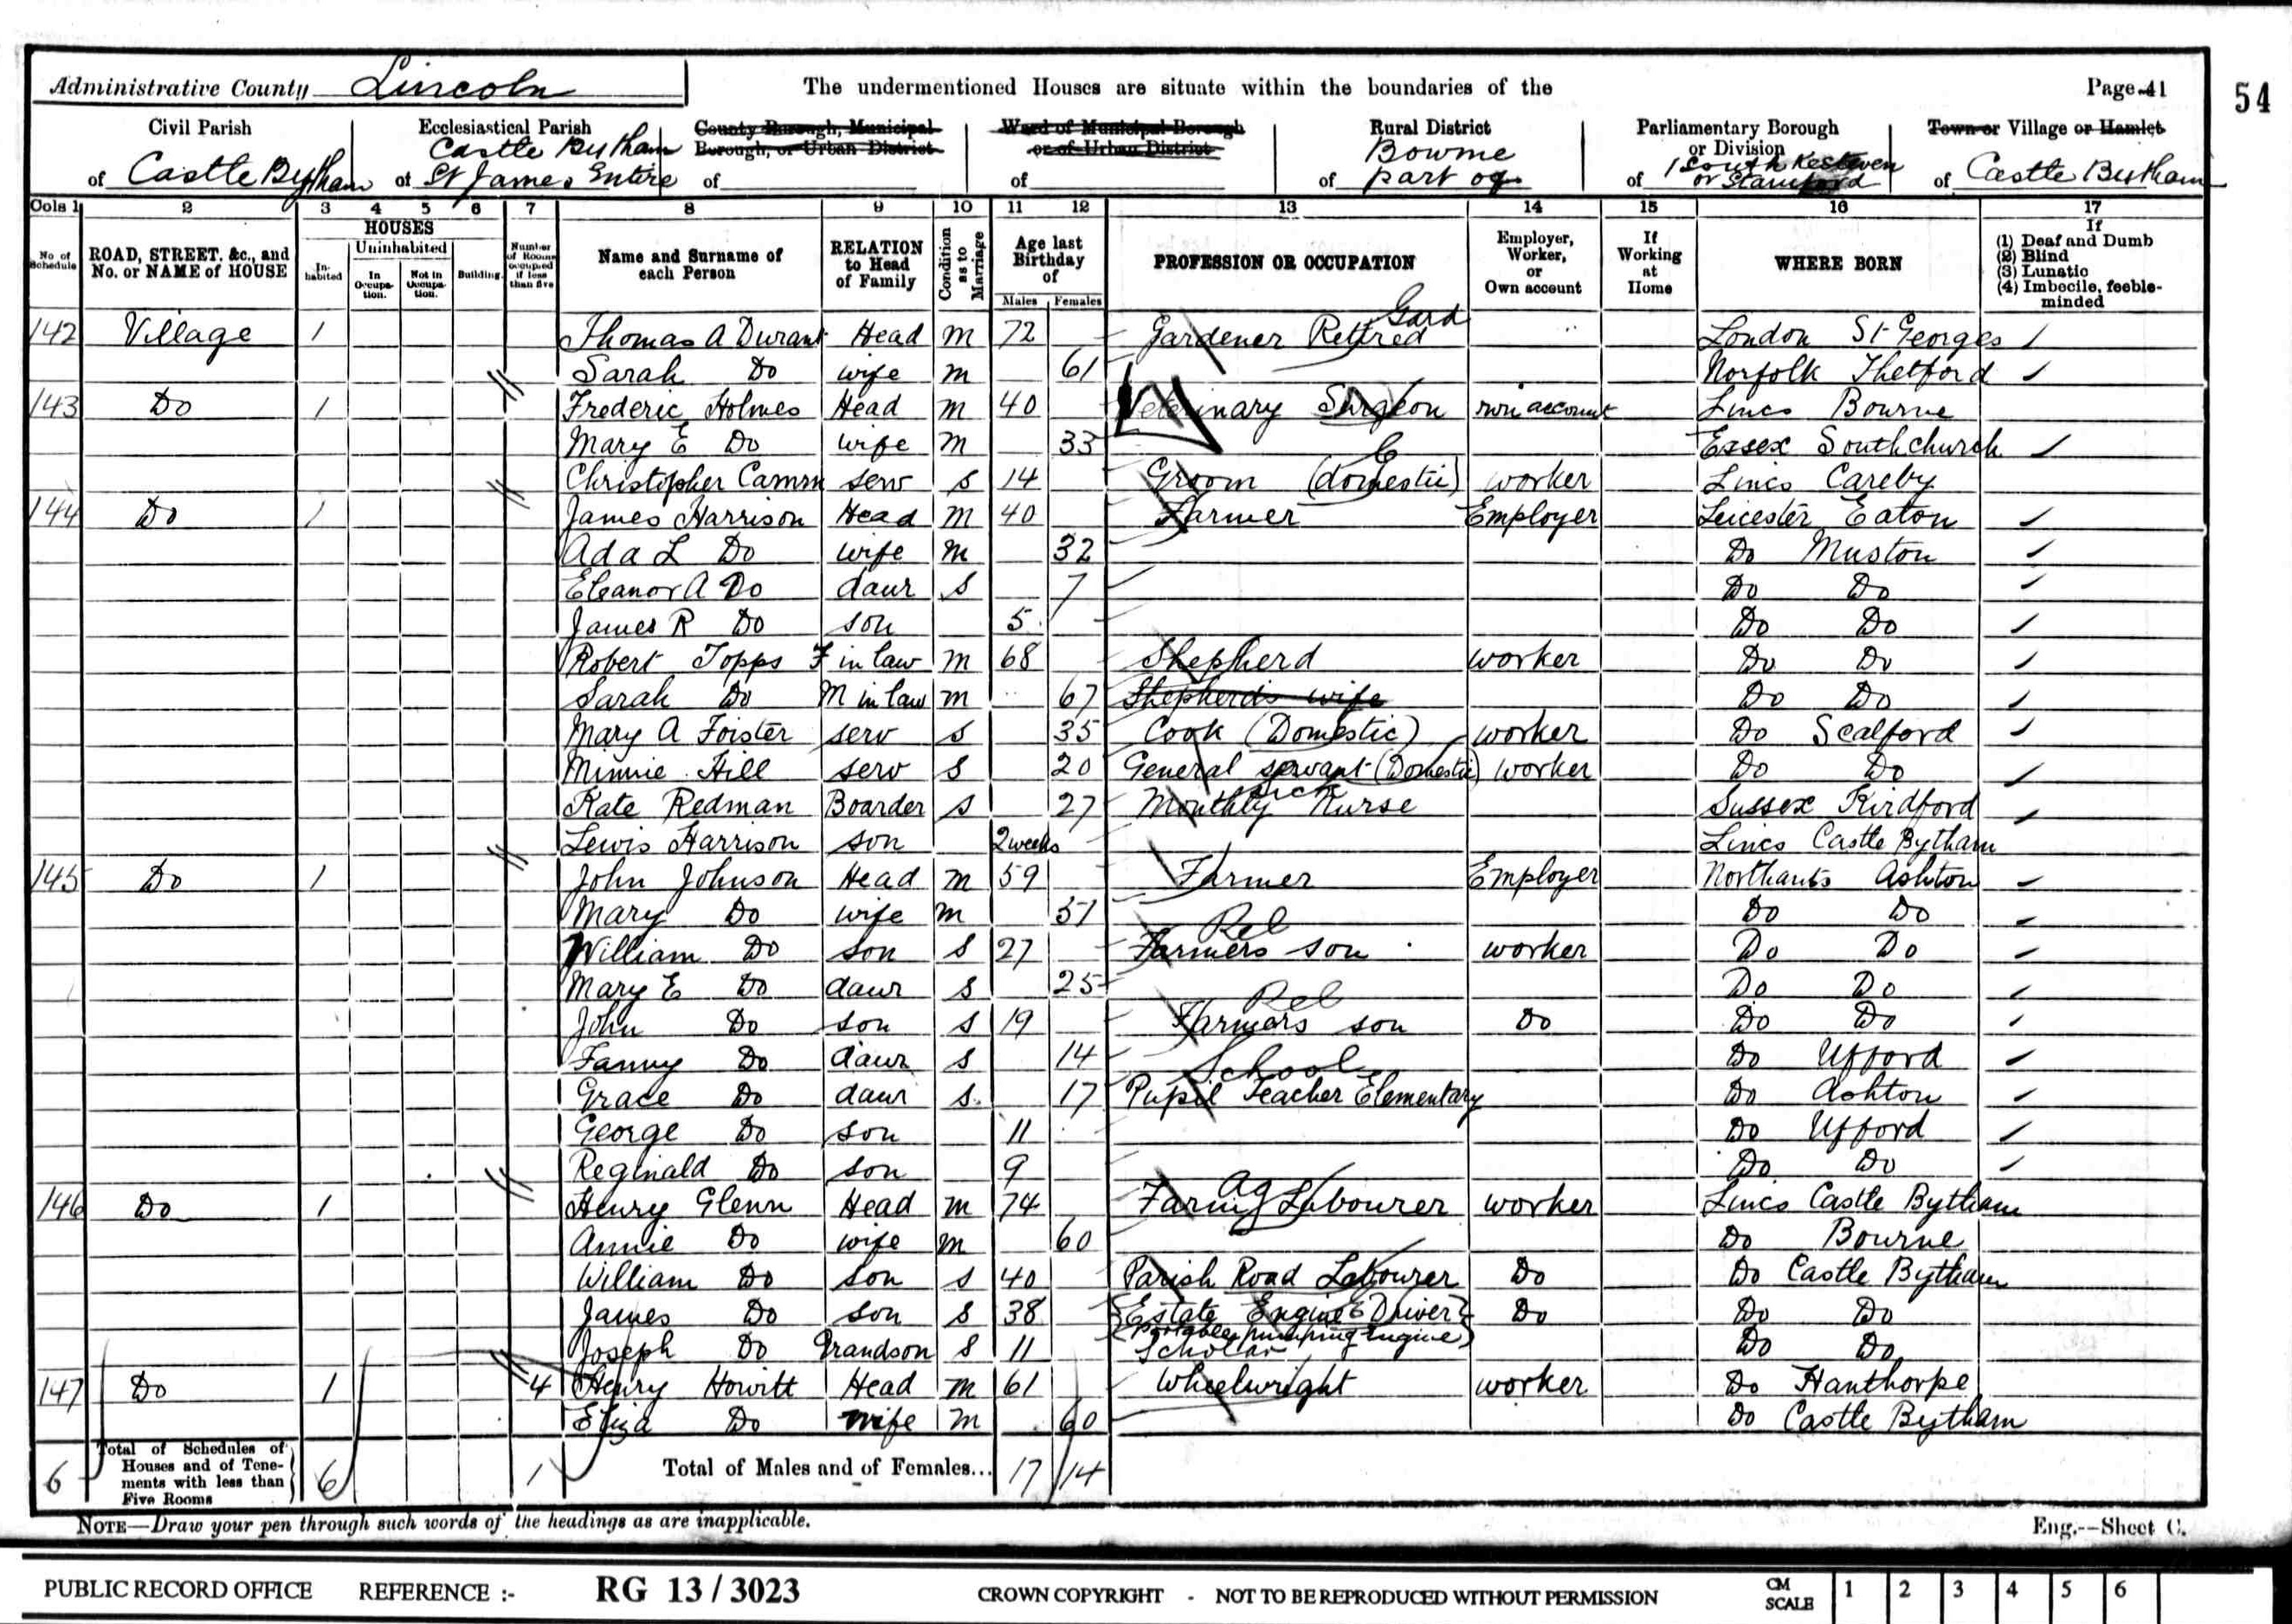 Administrative County Lincoln The undermentioned Houses are situate within the boundaries of the Page 41
54
Civil Parish of Castle Bytham
Ecclesiastical Parish of Castle Bytham St James Entire
County Borough, Municipal Borough, or Urban District of
Ward of Municipal Borough or of Urban District of
Rural District of Bourne part of
Parliamentary Borough or Division of South Kesteven or Stamford
Town or Village or Hamlet of Castle Bytham
Cols 1 2 3 4 5 6 7 8 9 10 11 12 13 14 15 16 17
No of Schedule
ROAD, STREET. &c., and No. or NAME of HOUSE
HOUSES
Inhabited
Uninhabited
In Occupation.
Not in Occupation.
Building
Number of Rooms occupied if less than five
Name and Surname of each Person
RELATION to Head of Family
Condition as to Marriage
Age last Birthday of
Males Females
PROFESSION OR OCCUPATION
Employer, Worker, or Own account
If Working at Home
WHERE BORN
If
(1) Deaf and Dumb
(2) Blind
(3) Lunatic
(4) Imbecile, feeble-minded
142 Village 1 Thomas A Durant Head M 72 Gardener Retired Gard London St Georges
Sarah Do wife M 61 Norfolk Thetford
143 Do 1 Frederic Holmes Head M 40 Veterinary Surgeon own account Lincs Bourne
Mary E Do wife M 33 Essex Southchurch
Christopher Camm serv S 14 Groom (domestic) worker Lincs Careby
144 Do 1 James Harrison Head M 40 Farmer Employer Leicester Eaton
Ada L Do wife M 32 Do Muston
Eleanor A Do daur S 7 Do Do
James R Do son 5 Do Do
Robert Topps F in law M 68 Shepherd worker Do Do
Sarah Do M in law M 67 Shepherds wife Do Do
Mary A Foister serv S 35 Cook (Domestic) worker Do Scalford
Minnie Hill serv S 20 General servant (Domestic) worker Do Do
Kate Redman Boarder S 27 Monthly Sick Nurse Sussex Kirdford
Lewis Harrison son 2 weeks Lincs Castle Bytham
145 Do 1 John Johnson Head M 59 Farmer Employer Northants Ashton
Mary Do wife M 51 Do Do
William Do son S 27 Farmers son Rel worker Do Do
Mary E Do daur S 25 Do Do
John Do son S 19 Farmers son Rel Do Do Do
Fanny Do daur S 14 Do Ufford
Grace Do daur S 17 Pupil Teacher Elementary School Do Ashton
George Do son 11 Do Ufford
Reginald Do son 9 Do Do
146 Do 1 Henry Glenn Head M 74 Farm Labourer Ag worker Lincs Castle Bytham
Annie Do wife M 60 Do Bourne
William Do son S 40 Parish Road Labourer Do Do Castle Bytham
James Do son S 38 {Estate Engine Driver} Do Do Do
(Portable pumping Engine)
Joseph Do Grandson S 11 Scholar Do Do
147 Do 1 4 Henry Howitt Head M 61 Wheelwright worker Do Hanthorpe
Eliza Do wife M 60 Do Castle Bytham
6 Total of Schedules of Houses and of Tenements with less than Five Rooms 6 1 Total of Males and of Females... 17 14
NOTE—Draw your pen through such words of the headings as are inapplicable.
Eng.--Sheet C.
PUBLIC RECORD OFFICE REFERENCE :- RG 13 / 3023 CROWN COPYRIGHT - NOT TO BE REPRODUCED WITHOUT PERMISSION CM SCALE 1 2 3 4 5 6